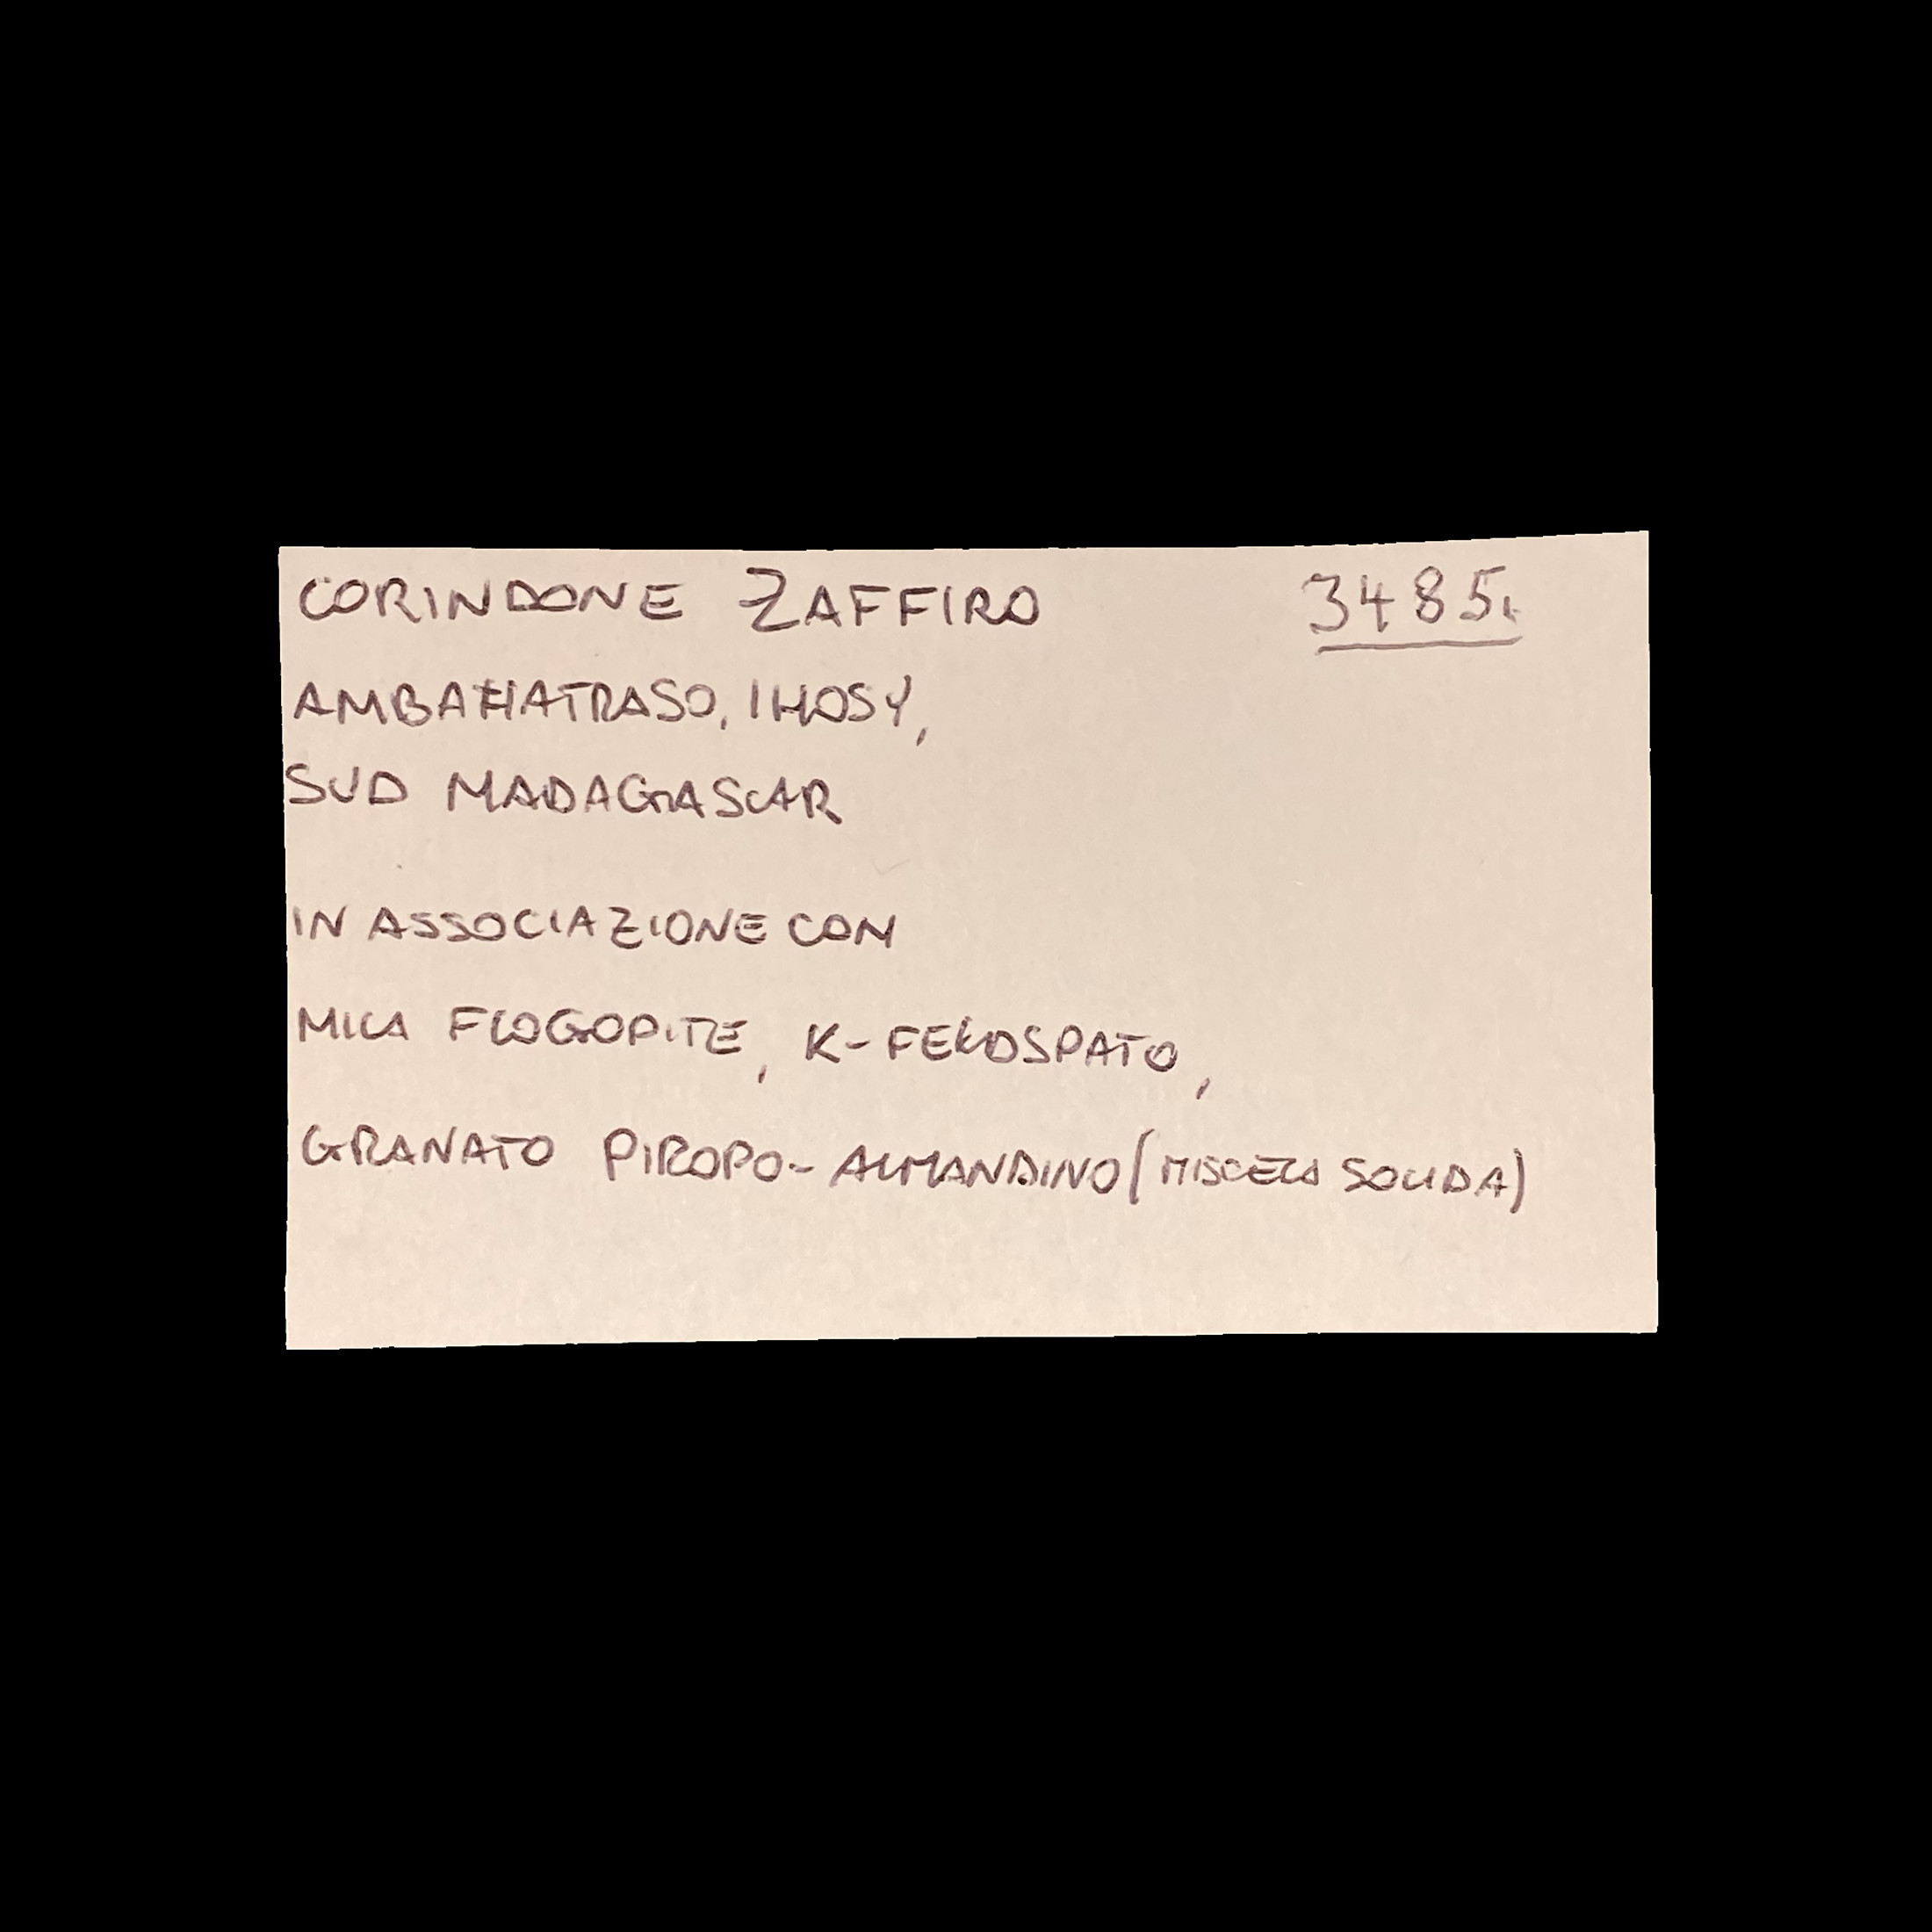 CORINDONE ZAFFIRO 3485.
AMBAHATRASO, IHOSY,
SUD MADAGASCAR
IN ASSOCIAZIONE CON
MICA FLOGOPITE, K-FELDSPATO,
GRANATO PIROPO-ALMANDINO (MISCELA SOLIDA)